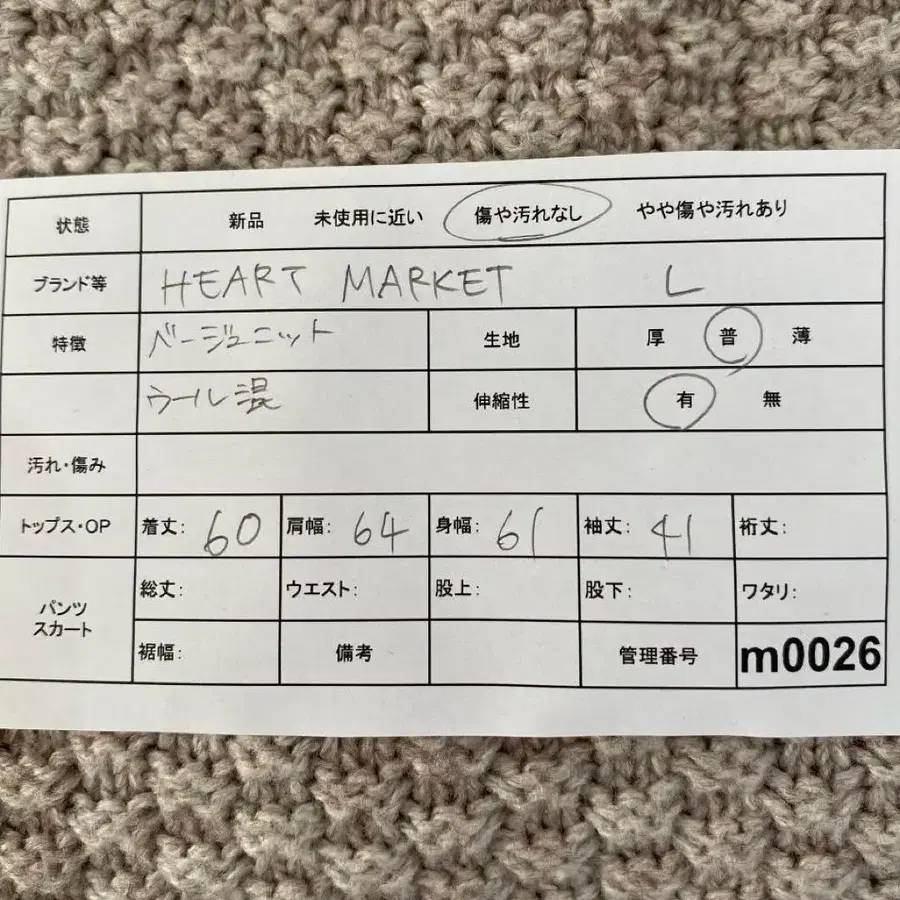 状態 新品 未使用に近い 傷や汚れなし やや傷や汚れあり
ブランド等 HEART MARKET L
特徴 ベージュニット 生地 厚 普 薄
ウール混 伸縮性 有 無
汚れ・傷み
トップス・OP 着丈: 60 肩幅: 64 身幅: 61 袖丈: 41 裄丈:
パンツ
スカート
総丈: ウエスト: 股上: 股下: ワタリ:
裾幅: 備考 管理番号 m0026